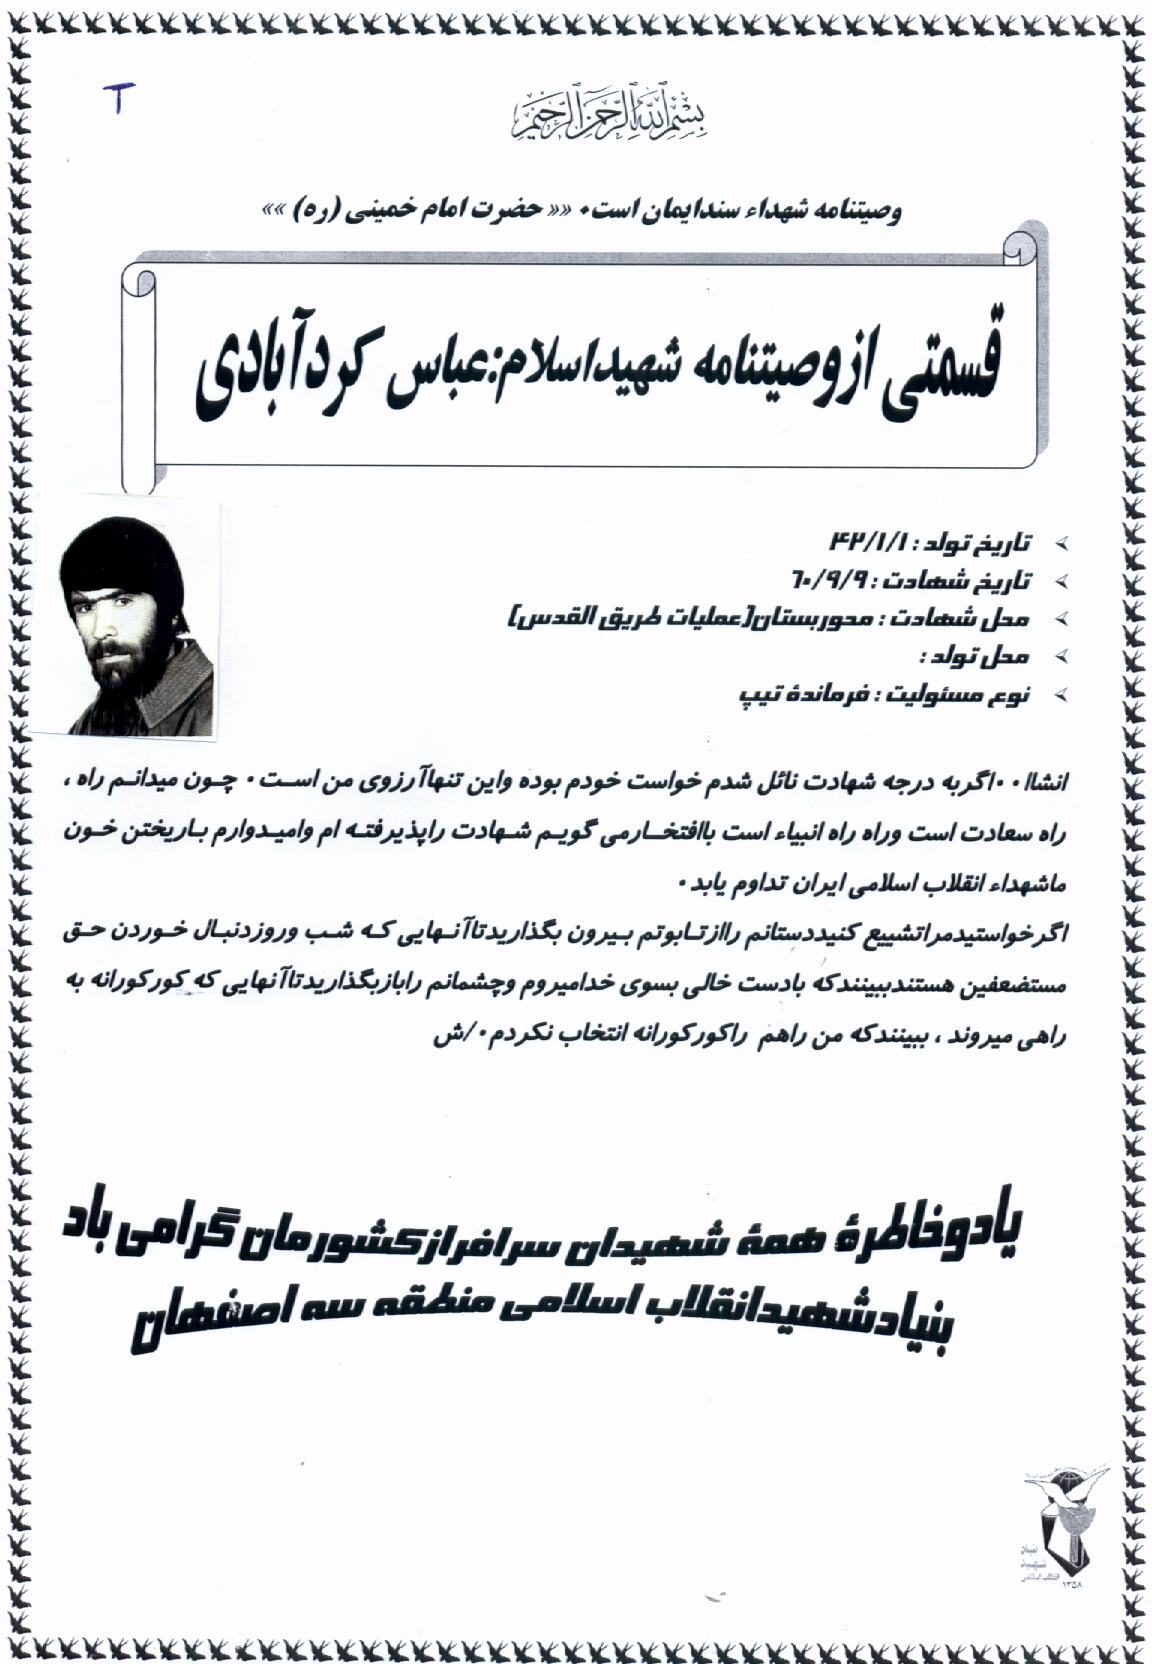 T
بسم الله الرحمن الرحیم
وصیتنامه شهداء سندایمان است۰ «« حضرت امام خمینی (ره) »»
قسمتی ازوصیتنامه شهیداسلام:عباس کردآبادی
تاریخ تولد : ۴۲/۱/۱
تاریخ شهادت : ۶۰/۹/۹
محل شهادت : محوربستان(عملیات طریق القدس)
محل تولد :
نوع مسئولیت : فرماندۀ تیپ
انشاا۰۰اگربه درجه شهادت نائل شدم خواست خودم بوده واین تنهاآرزوی من است۰ چون میدانم راه ،
راه سعادت است وراه راه انبیاء است باافتخارمی گویم شهادت راپذیرفته ام وامیدوارم باریختن خون
ماشهداء انقلاب اسلامی ایران تداوم یابد۰
اگرخواستیدمراتشییع کنیددستانم راازتابوتم بیرون بگذاریدتاآنهایی که شب وروزدنبال خوردن حق
مستضعفین هستندببینندکه بادست خالی بسوی خدامیروم وچشمانم رابازبگذاریدتاآنهایی که کورکورانه به
راهی میروند ، ببینندکه من راهم راکورکورانه انتخاب نکردم۰/ش
یادوخاطرۀ همۀ شهیدان سرافرازکشورمان گرامی باد
بنیادشهیدانقلاب اسلامی منطقه سه اصفهان
بنیاد
شهید
انقلاب اسلامی
۱۳۵۸